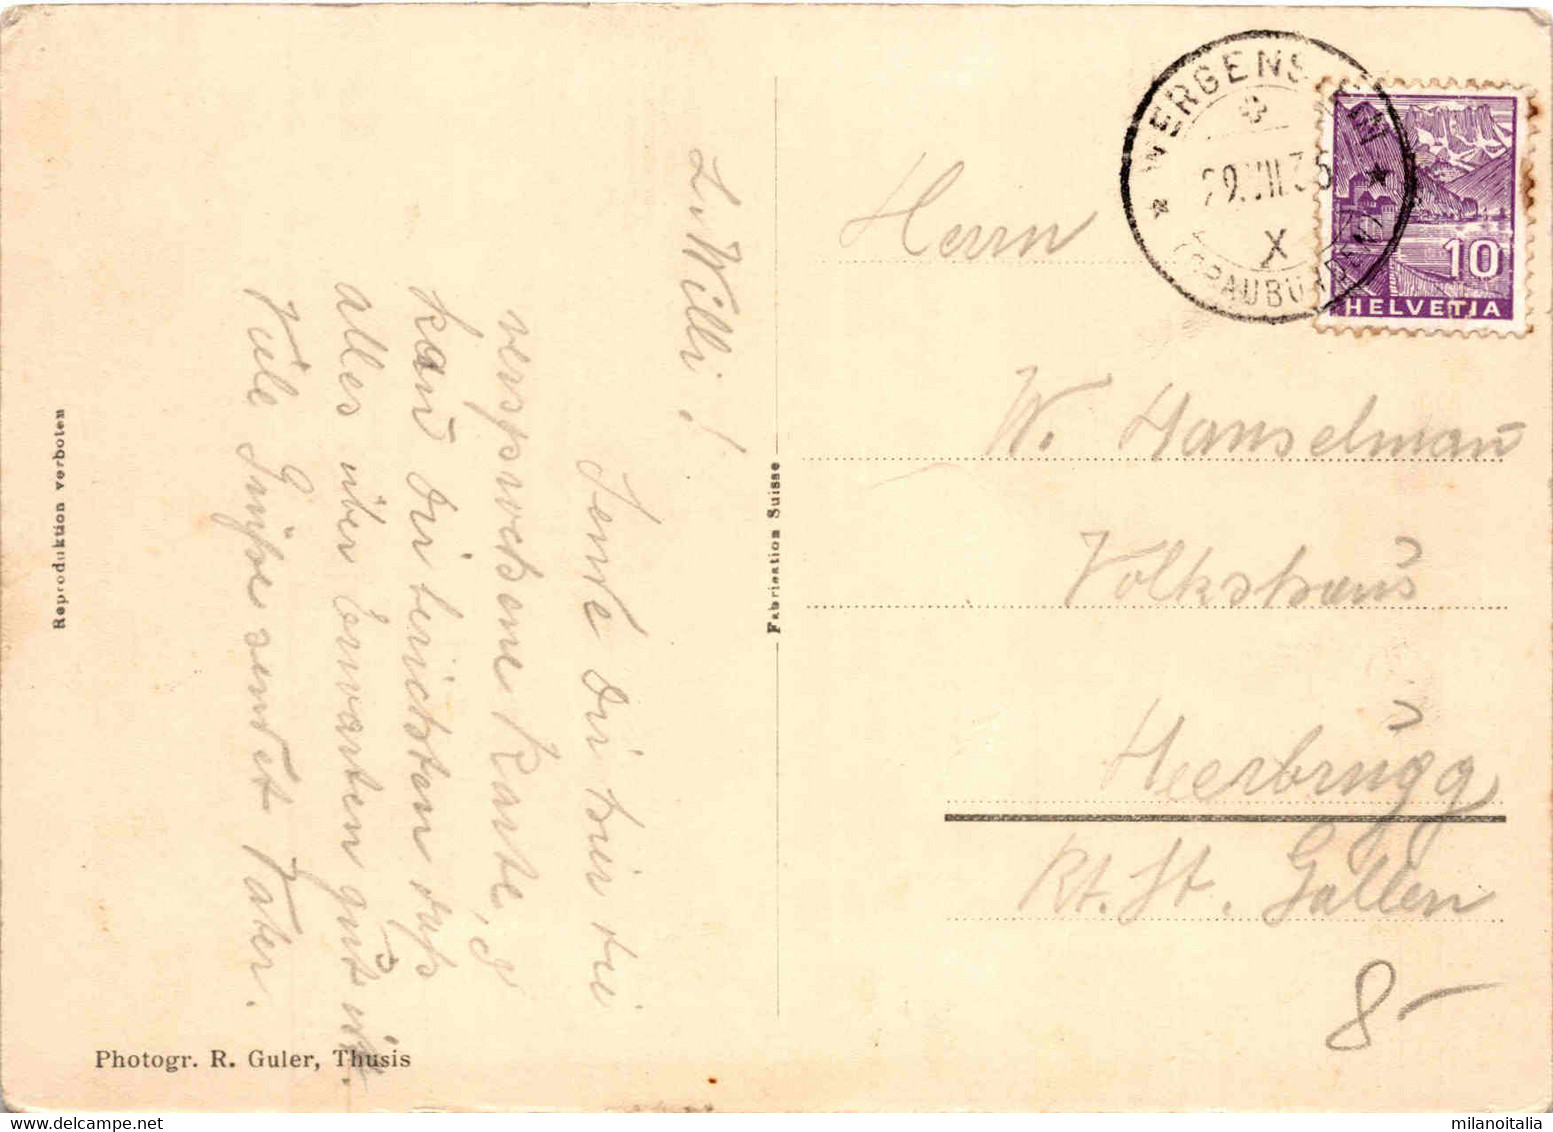 Reproduktion verboten
L. Willi!
Sende Dir hier die
versprochene Karte,
kañ Dir berichten daß
alles über Erwarten gut ist.
Viele Grüße sendet Vater.
Photogr. R. Guler, Thusis
Fabrication Suisse
WERGENSTEIN
29.VII.35
X
(GRAUBÜNDEN)
10
HELVETIA
Herrn
W. Hanselmañ
Volkshaus
Heerbrugg
Kt. St. Gallen
8-
milanoitalia